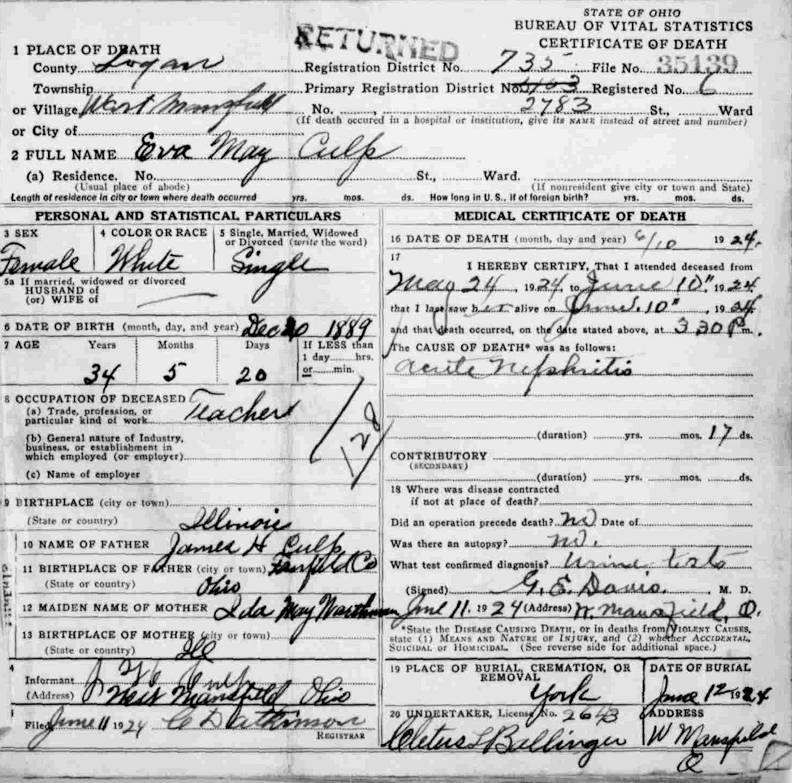 STATE OF OHIO
BUREAU OF VITAL STATISTICS
CERTIFICATE OF DEATH
RETURNED
1 PLACE OF DEATH
County Logan
Registration District No. 735 File No. 35139
Township
Primary Registration District No. Registered No. 6
or Village West Mansfield
No. 2783 St., Ward
(If death occured in a hospital or institution, give its NAME instead of street and number)
or City of
2 FULL NAME Eva May Culp
(a) Residence. No. St., Ward.
(Usual place of abode) (If nonresident give city or town and State)
Length of residence in city or town where death occurred yrs. mos. ds. How long in U. S., if of foreign birth? yrs. mos. ds.
PERSONAL AND STATISTICAL PARTICULARS
3 SEX 4 COLOR OR RACE 5 Single, Married, Widowed
or Divorced (write the word)
Female White Single
5a If married, widowed or divorced
HUSBAND of
(or) WIFE of
6 DATE OF BIRTH (month, day, and year) Dec 20 1889
7 AGE Years Months Days If LESS than
1 day hrs.
34 5 20 or min.
8 OCCUPATION OF DECEASED
(a) Trade, profession, or
particular kind of work Teacher
128
(b) General nature of Industry,
business, or establishment in
which employed (or employer)
(c) Name of employer
9 BIRTHPLACE (city or town)
(State or country) Illinois
10 NAME OF FATHER James H Culp
11 BIRTHPLACE OF FATHER (city or town) Fairfield Co
(State or country) Ohio
12 MAIDEN NAME OF MOTHER Ida May
13 BIRTHPLACE OF MOTHER (city or town)
(State or country) Ill
Informant Culp
(Address) West Mansfield Ohio
Filed June 11 1924 C D Atkinson
REGISTRAR
MEDICAL CERTIFICATE OF DEATH
16 DATE OF DEATH (month, day and year) 6/10 1924.
17
I HEREBY CERTIFY, That I attended deceased from
May 24, 1924, to June 10", 1924
that I last saw her alive on June 10" 1924
and that death occurred, on the date stated above, at 3 30 P m.
The CAUSE OF DEATH* was as follows:
Acute Nephritis
(duration) yrs. mos. 17 ds.
CONTRIBUTORY
(SECONDARY)
(duration) yrs. mos. ds.
18 Where was disease contracted
if not at place of death?
Did an operation precede death? no Date of
Was there an autopsy? no.
What test confirmed diagnosis? Urine tests
(Signed) G. E. Davis. M. D.
June 11. 1924 (Address) W. Mansfield, O.
*State the DISEASE CAUSING DEATH, or in deaths from VIOLENT CAUSES,
state (1) MEANS AND NATURE OF INJURY, and (2) whether ACCIDENTAL,
SUICIDAL or HOMICIDAL. (See reverse side for additional space.)
19 PLACE OF BURIAL, CREMATION, OR
REMOVAL
York
DATE OF BURIAL
June 12 1924
20 UNDERTAKER, License No. 2643
Cletus L Ballinger
ADDRESS
W Mansfield
O